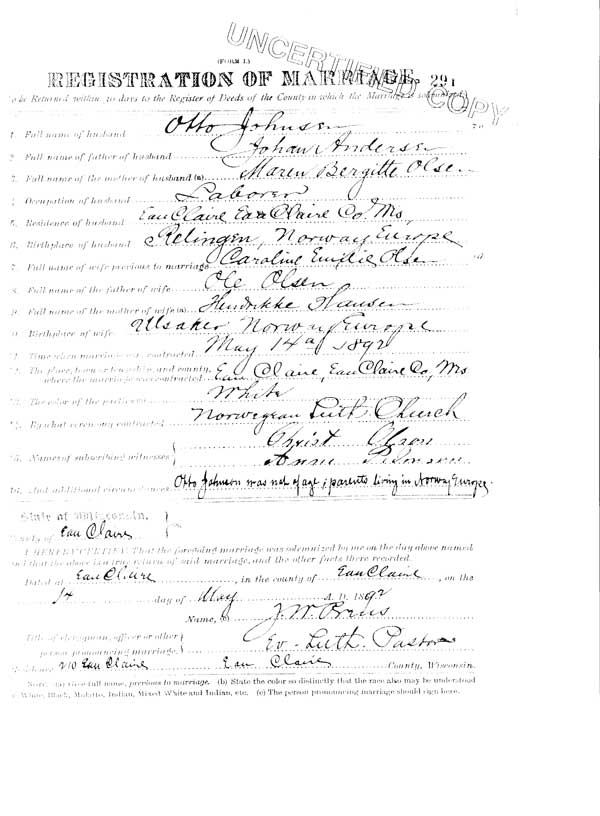 UNCERTIFIED COPY
(FORM L)
REGISTRATION OF MARRIAGE. 291
To be Returned within 30 days to the Register of Deeds of the County in which the Marriage is solemnized.
1. Full name of husband Otto Johnsen
2. Full name of father of husband Johan Andersen
3. Full name of the mother of husband (a) Maren Bergitte Olsen
4. Occupation of husband Laborer
5. Residence of husband Eau Claire Eau Claire Co, Wis
6. Birthplace of husband Relingen, Norway Europe
7. Full name of wife previous to marriage Caroline Emilie Olsen
8. Full name of the father of wife Ole Olsen
9. Full name of the mother of wife (a) Hendrikke Hansen
10. Birthplace of wife Ulsaker Norway Europe
11. Time when marriage was contracted May 14 1892
12. The place, town or township, and county,
where the marriage was contracted Eau Claire, Eau Claire Co, Wis
13. The color of the parties White
14. By what ceremony contracted Norwegian Luth. Church
15. Names of subscribing witnesses Christ Olson
Anne
16. And additional circumstances Otto Johnson was not of age; parents living in Norway Europe.
State of Wisconsin,
County of Eau Claire
I HEREBY CERTIFY, That the foregoing marriage was solemnized by me on the day above named
and that the above is a true return of said marriage, and the other facts there recorded.
Dated at Eau Claire, in the county of Eau Claire, on the
14 day of May A. D. 1892
Name, (c) J. W.
Title of clergyman, officer or other
person pronouncing marriage. Ev. Luth. Pastor
Residence Eau Claire Eau Claire County, Wisconsin.
NOTE. (a) Give full name, previous to marriage. (b) State the color so distinctly that the race also may be understood
White, Black, Mulatto, Indian, Mixed White and Indian, etc. (c) The person pronouncing marriage should sign here.